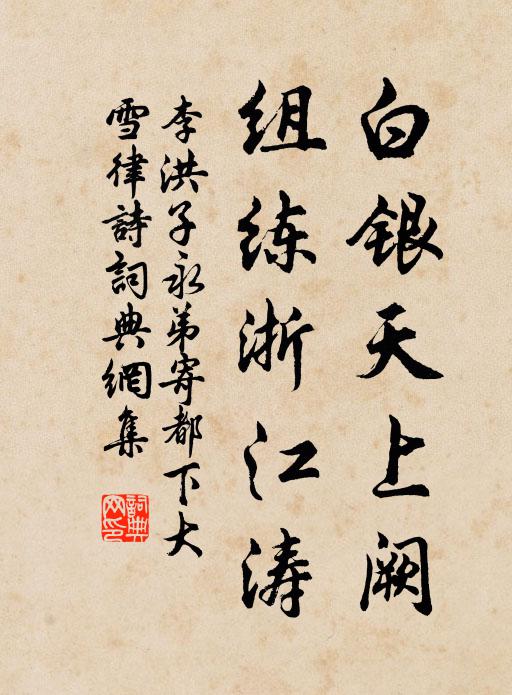 白银天上阙
组练浙江涛
李洪子永弟寄都下大
雪律詩詞典網集
詞典
网印